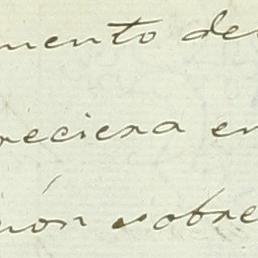 mento de
reciera en
ión sobre